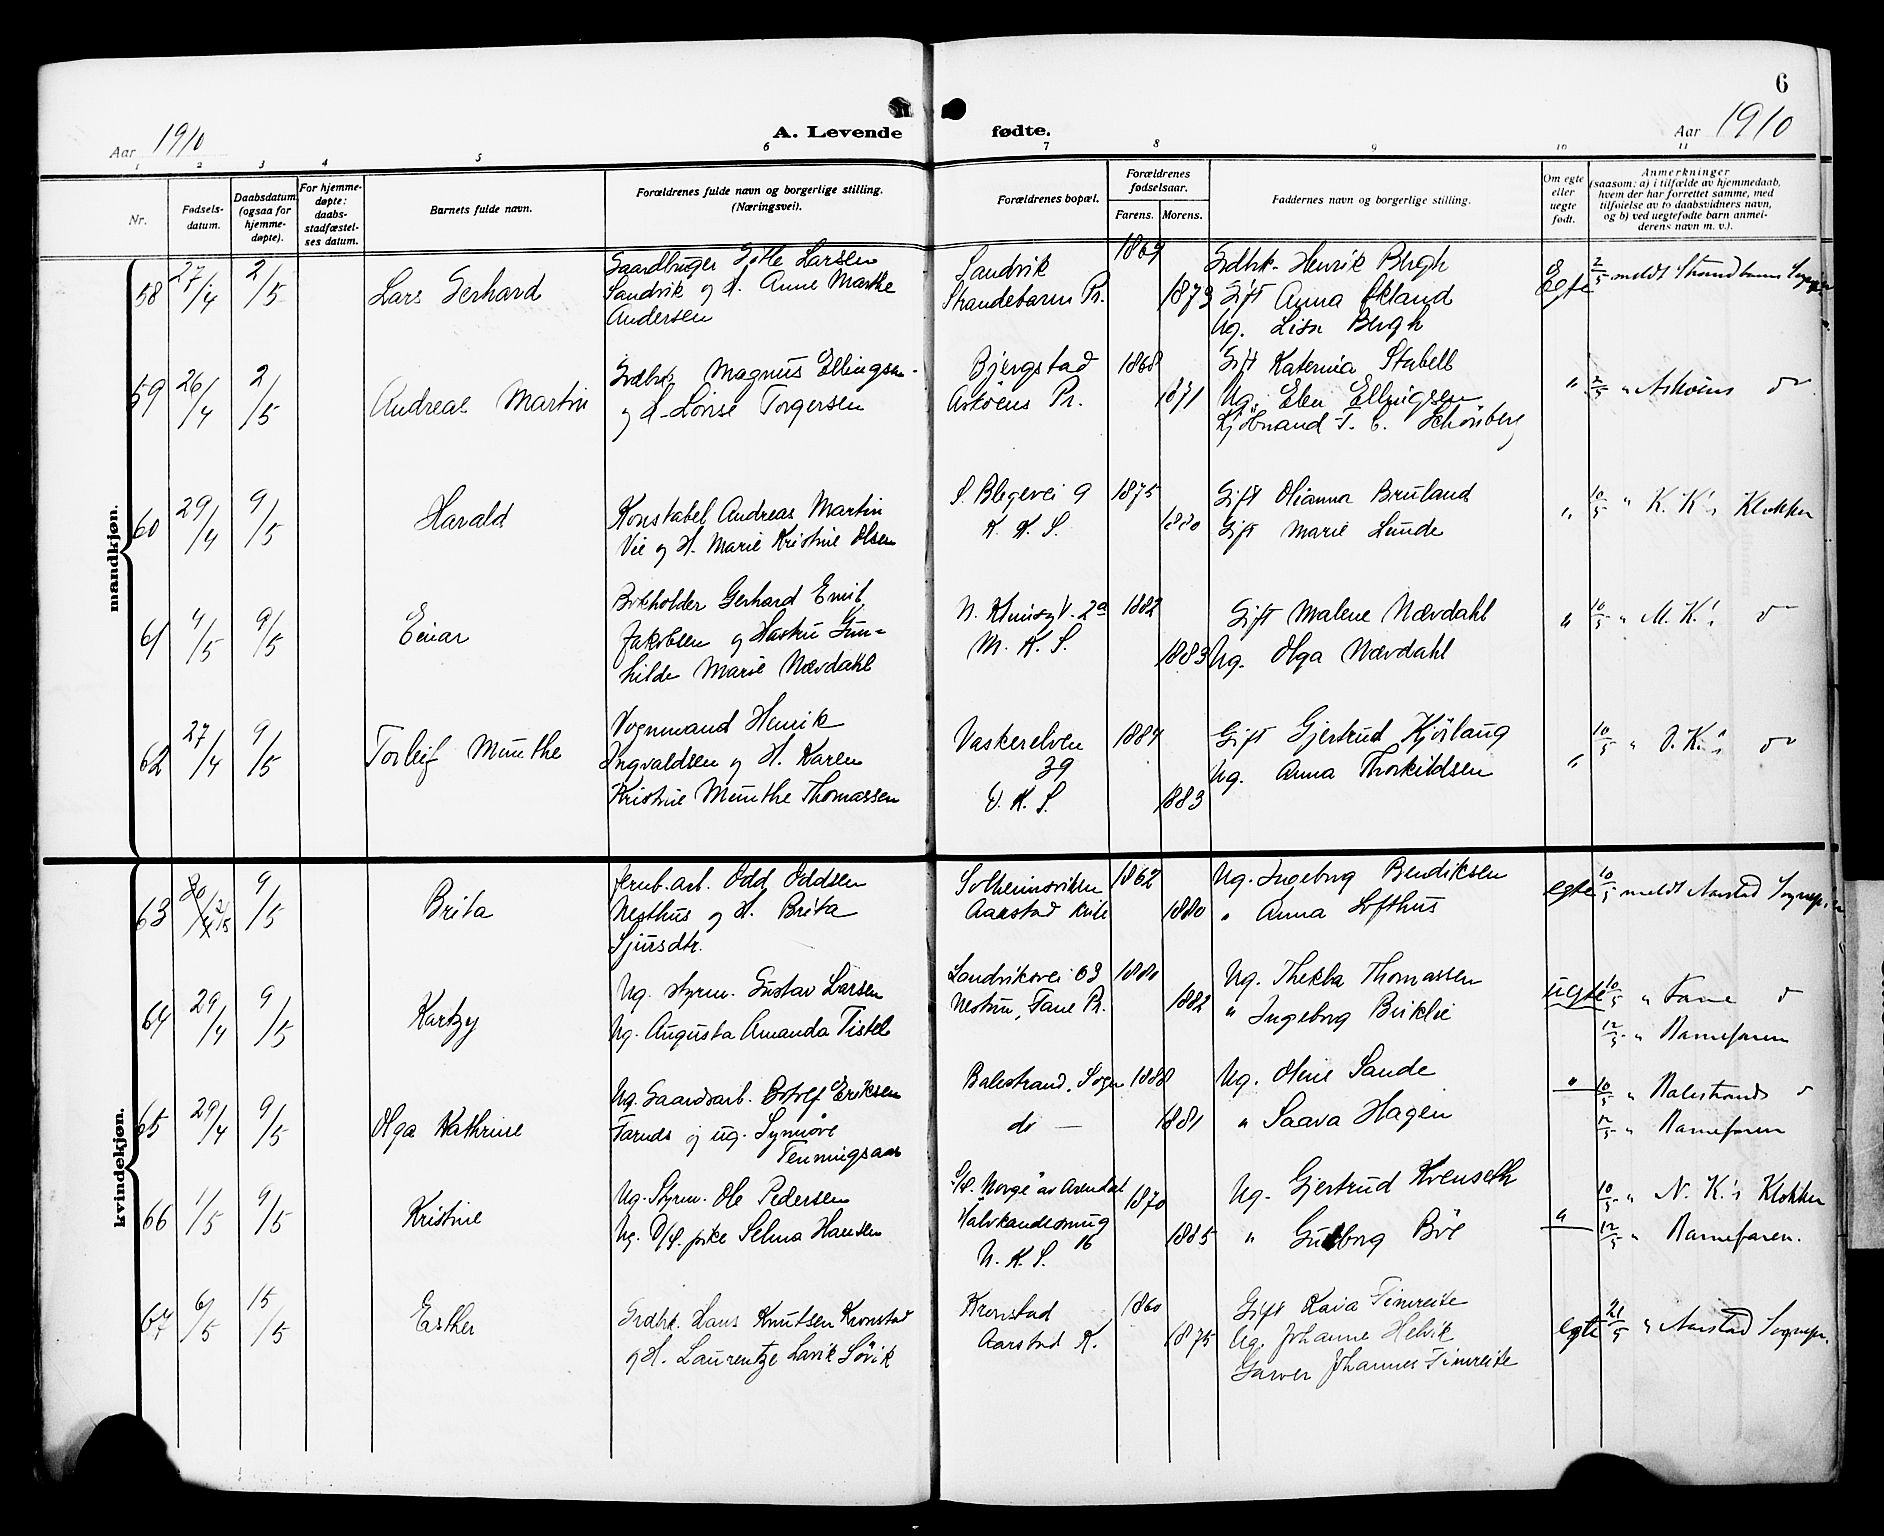 6
Aar 1910
A. Levende fødte.
Aar 1910
1 2 3 4 5 6 7 8 9 10 11
Nr.
Fødsels-
datum.
Daabsdatum
(ogsaa for
hjemme-
døpte).
For hjemme-
døpte:
daabs-
stadfæstel-
ses datum.
Barnets fulde navn.
Forældrenes fulde navn og borgerlige stilling.
(Næringsvei).
Forældrenes bopæl.
Forældrenes
fødselsaar.
Farens. Morens.
Faddernes navn og borgerlige stilling.
Om egte
eller
uegte
født.
Anmerkninger
(saasom: a) i tilfælde av hjemmedaab,
hvem der har forrettet samme, med
tilføielse av to daabsvidners navn,
og b) ved uegtefødte barn anmel-
derens navn m. v.).
mandkjøn.
58 27/4 2/5 Lars Gerhard
Gaardbruger Larsen
Sandvik og H. Anne Marthe
Andersen
Sandvik
Strandebarm Pr.
1869 1873
Grdbrk. Henrik Bergh
Gift Anna Økland
Ug. Lisa Bergh
Egte 2/5 meldt Strandebarms
59 26/4 2/5 Andreas Martin
Grdbrk. Magnus Ellingsen
og H. Lovise Torgersen
Bjergstad
Askøens Pr.
1868 1871
Gift Katerina Stabell
Ug. Ellingsen
T. C. Schönberg
" 2/5 " Askøens do
60 29/4 9/5 Harald
Konstabel Andreas Martin
Vie og H. Marie Kristine Olsen
S. Blegevei 9
K. K. S.
1875 1880
Gift Bruland
Gift Marie Lunde
" 10/5 " K. K's Klokker
61 4/5 9/5 Einar
Bokholder Gerhard Emil
Jakobsen og Hustru Gun=
hilde Marie Nævdahl
M. K. S.
1882 1883
Gift Malene Nævdahl
Ug. Olga Nævdahl
" 10/5 " M. K's do
62 27/4 9/5 Torleif Munthe
Vognmand Henrik
Ingvaldsen og H. Karen
Kristine Munthe Thomassen
Vaskerelven
39
D. K. S.
1884 1883
Gift Gjertrud Kjörlaug
Ug. Anna Thorkildsen
" 10/5 " D. K's do
kvindekjøn.
63 9/5 Brita
Jernb. arb. Odd Oddsen
Nesthus og H. Brita
Sjursdtr.
Solheimsviken
Aarstad
1862 1880
Ug. Ingeborg Bendiksen
" Anna Lofthus
egte 10/5 meldt Aarstad Sognepr.
64 29/4 9/5
Ug. styrm. Gustav Larsen
Ug. Augusta Amanda
Sandviksvei 63
Nestun, Fane Pr.
1880 1882
Ug. Thekla Thomassen
" Ingeborg Birklie
uegte 10/5 " Fane do
12/5 " Barnefaren
65 29/4 9/5 Olga Kathrine
Ug. Gaardsarb. Botolf Eriksen
Farnes og ug. Synnöve
Tenningsaas
Balestrand, Sogn
do —
1888 1881
Ug. Oline Sande
" Hagen
" 10/5 " Balestrands do
12/5 " Barnefaren
66 1/5 9/5 Kristine
Ug. Styrm. Ole Pedersen
Ug. D/S. pike Selma Hansen
S/S. "Norge" av Arendal
Halvkandesmug
16
N. K. S.
1870 1885
Ug. Gjertrud Kvenseth
" Guborg Böe
" 10/5 " N. K's Klokker
12/5 " Barnefaren.
67 6/5 15/5 Esther
Grdbrk. Hans Knutsen Kronstad
og H. Laurentze Lavik Sövik
Kronstad
Aarstad K.
1860 1875
Gift Kaia Timreite
Ug. Johanne Helvik
Garver Johannes Timreite
egte 21/5 " Aarstad Sognepr.